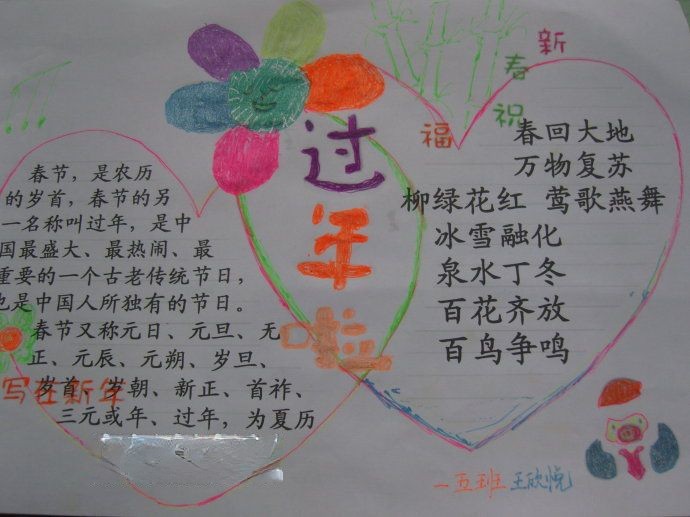 过年啦
新春祝福
春节，是农历
的岁首，春节的另
一名称叫过年，是中
国最盛大、最热闹、最
重要的一个古老传统节日，
也是中国人所独有的节日。
春节又称元日、元旦、无
正、元辰、元朔、岁旦、
岁首、岁朝、新正、首祚、
三元或年、过年，为夏历
写在新年
春回大地
万物复苏
柳绿花红 莺歌燕舞
冰雪融化
泉水丁冬
百花齐放
百鸟争鸣
一五班 王欣悦